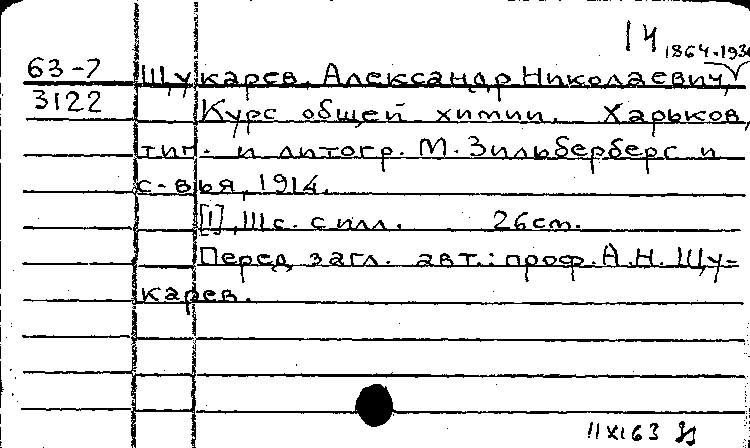 14 1864-193
63-7 Щукарев, Александр Николаевич,
3122 Курс общей химии. Харьков,
тип. и литогр. М. Зильберберг и
с-вья, 1914.
[I], III с. с илл. 26 cm.
Перед загл. авт.: проф. А.Н. Щу-
карев.
11 XI 63